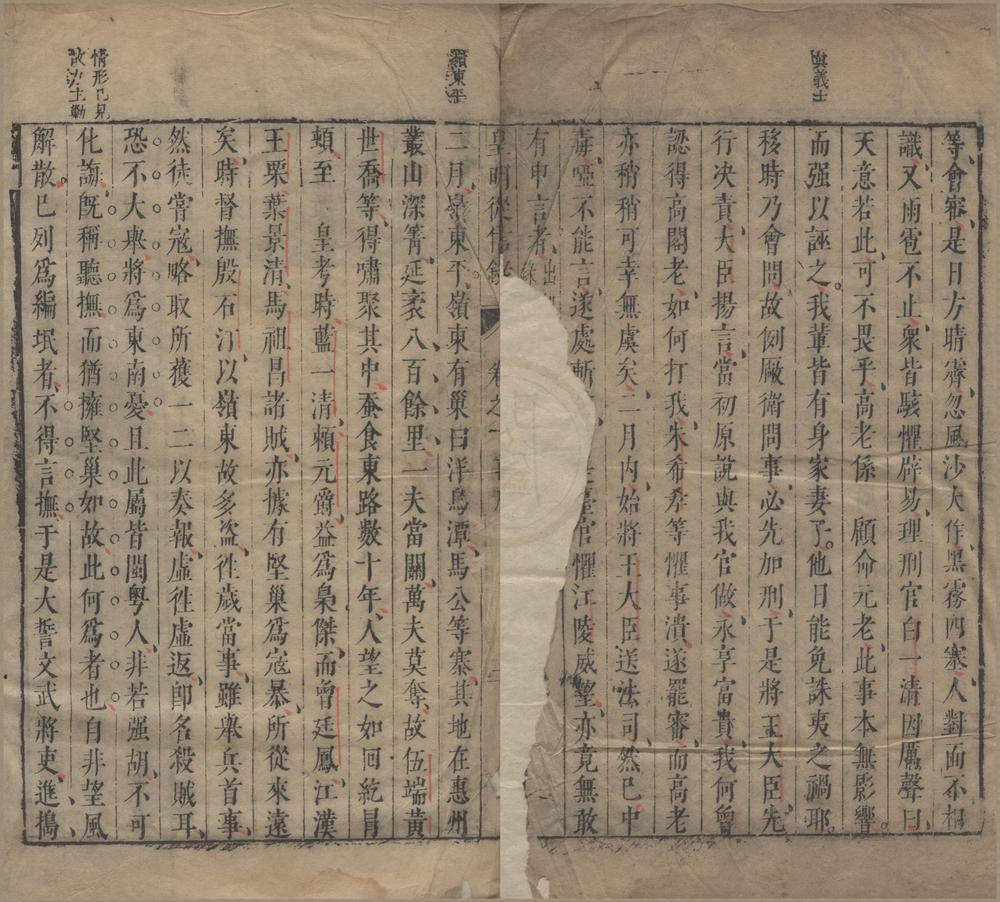 等會審是日方晴霽忽風沙大作黑霧四塞人對面不相
識又雨雹不止衆皆駭懼辟易理刑官白一清因厲聲曰
天意若此可不畏乎高老係 顧命元老此事本無影響
而强以誣之我輩皆有身家妻子他日能免誅夷之禍耶
移時乃會問故例厰衛問事必先加刑于是將王大臣先
行决責大臣揚言當初原說與我官做永享富貴我何曾
認得高閣老如何打我朱希孝等懼事潰遂罷審而高老
亦稍稍可幸無虞矣二月內始將王大臣送法司然已中
毒啞不能言遂處斬
官懼江陵威望亦竟無敢
有申言者出
皇明從信錄
二月嶺東平嶺東有巢曰洋烏潭馬公等寨其地在惠州
叢山深箐延袤八百餘里一夫當關萬夫莫奪故伍端黃
世喬等得嘯聚其中蚕食東路數十年人望之如回紇冐
頓至 皇考時藍一清賴元爵益爲梟傑而曾廷鳳江漢
王栗葉景清馬祖昌諸賊亦據有堅巢爲寇暴所從來遠
矣時督撫殷石汀以嶺東故多盗徃歲當事雖舉兵首事
然徒嘗寇略取所獲一二以奏報虛徃虛返卽名殺賊耳
恐不大舉將爲東南憂且此屬皆閩粤人非若强胡不可
化誨旣稱聽撫而猶擁堅巢如故此何爲者也自非望風
解散已列爲編氓者不得言撫于是大誓文武將吏進搗
義士
嶺東平
情形已見